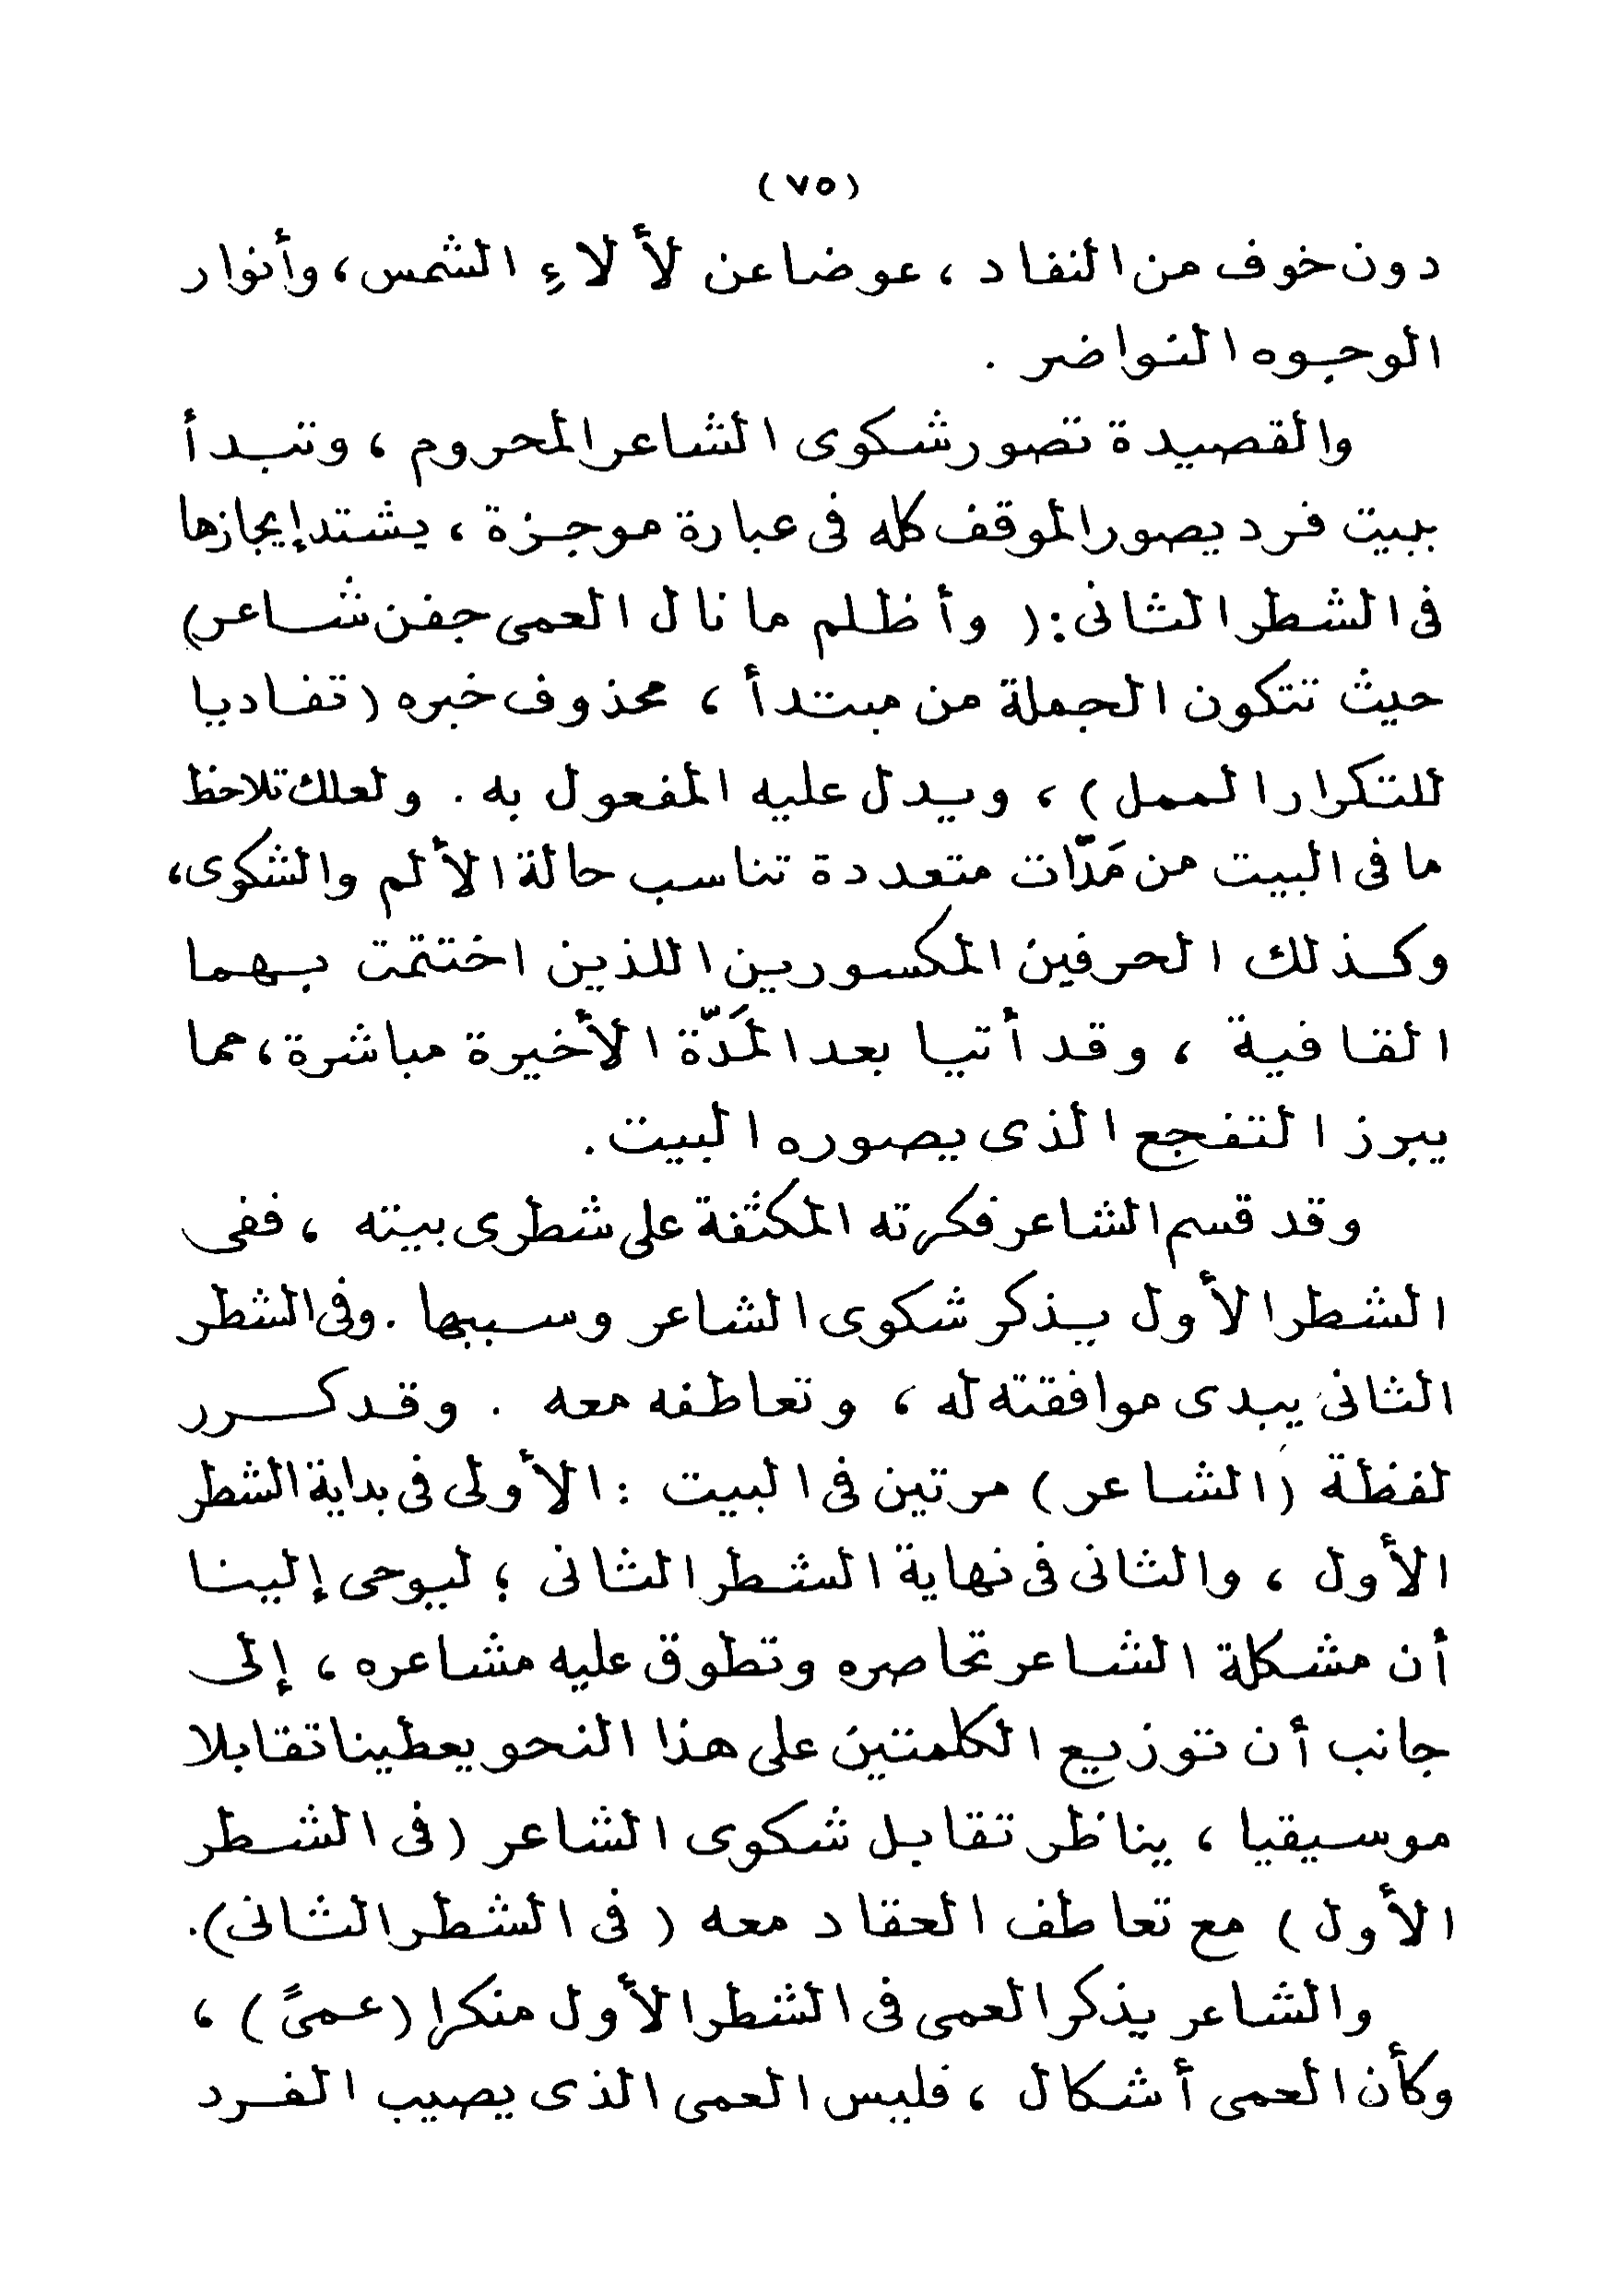 (٧٥)
دون خوف من النفاد ، عوضا عن لألاءِ الشمس، وأنوار
الوجوه النواضر .
والقصيدة تصور شكوى الشاعر المحروم ، وتبدأ
ببيت فرد يصور الموقف كله فى عبارة موجزة ، يشتد إيجازها
فى الشطر الثانى : ( وأظلم ما نال العمى جفن شاعر)
حيث تتكون الجملة من مبتدأ ، محذوف خبره ( تفاديا
للتكرار الممل ) ، ويدل عليه المفعول به . ولعلك تلاحظ
ما فى البيت من مَدّات متعددة تناسب حالة الألم والشكوى،
وكذلك الحرفين المكسورين اللذين اختتمت بهما
القافية ، وقد أتيا بعد المَدّة الأخيرة مباشرة ، مما
يبرز التفجع الذى يصوره البيت .
وقد قسم الشاعر فكرته المكثفة على شطرى بيته ، ففى
الشطر الأول يذكر شكوى الشاعر وسببها . وفى الشطر
الثانى يبدى موافقته له ، وتعاطفه معه . وقد كرر
لفظة (الشاعر) مرتين فى البيت : الأولى فى بداية الشطر
الأول ، والثانى فى نهاية الشطر الثانى ؛ ليوحى إلينا
أن مشكلة الشاعر تحاصره وتطوق عليه مشاعره ، إلى
جانب أن توزيع الكلمتين على هذا النحو يعطينا تقابلا
موسيقيا ، يناظر تقابل شكوى الشاعر (فى الشطر
الأول ) مع تعاطف العقاد معه ( فى الشطر الثانى).
والشاعر يذكر العمى فى الشطر الأول منكرا (عمىً) ،
وكأن العمى أشكال ، فليس العمى الذى يصيب الفرد